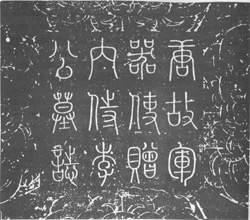 唐故軍
器使贈
內侍李
公墓誌